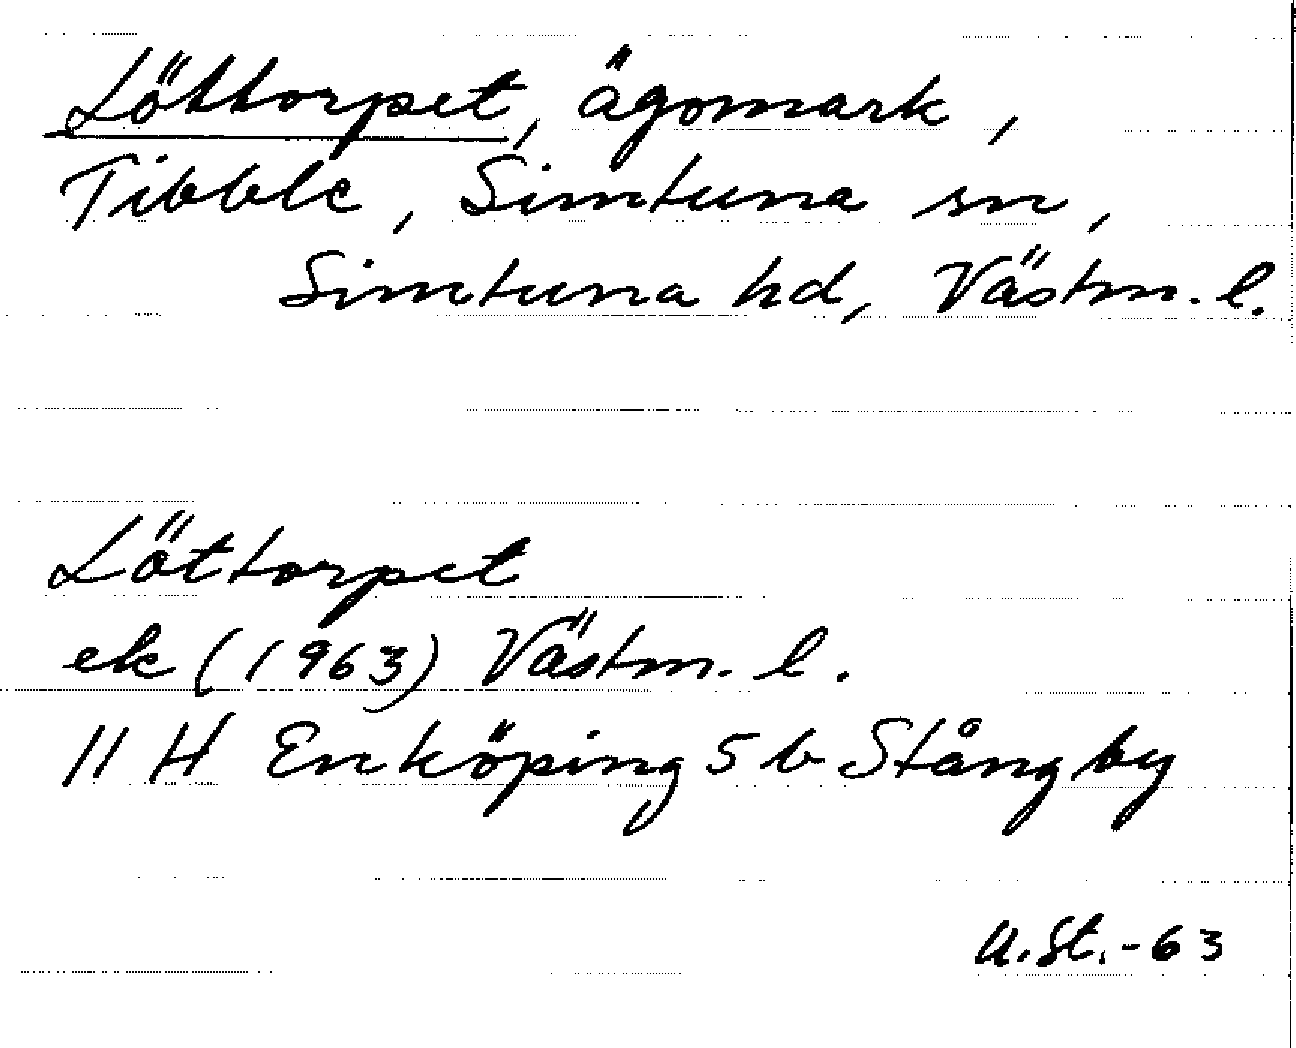 Löttorpet, ägomark,
Tibble, Simtuna sn,
Simtuna hd, Västm. l.
Löttorpet
ek (1963) Västm. l.
11 H Enköping 5 b Stångby
A.St.-63